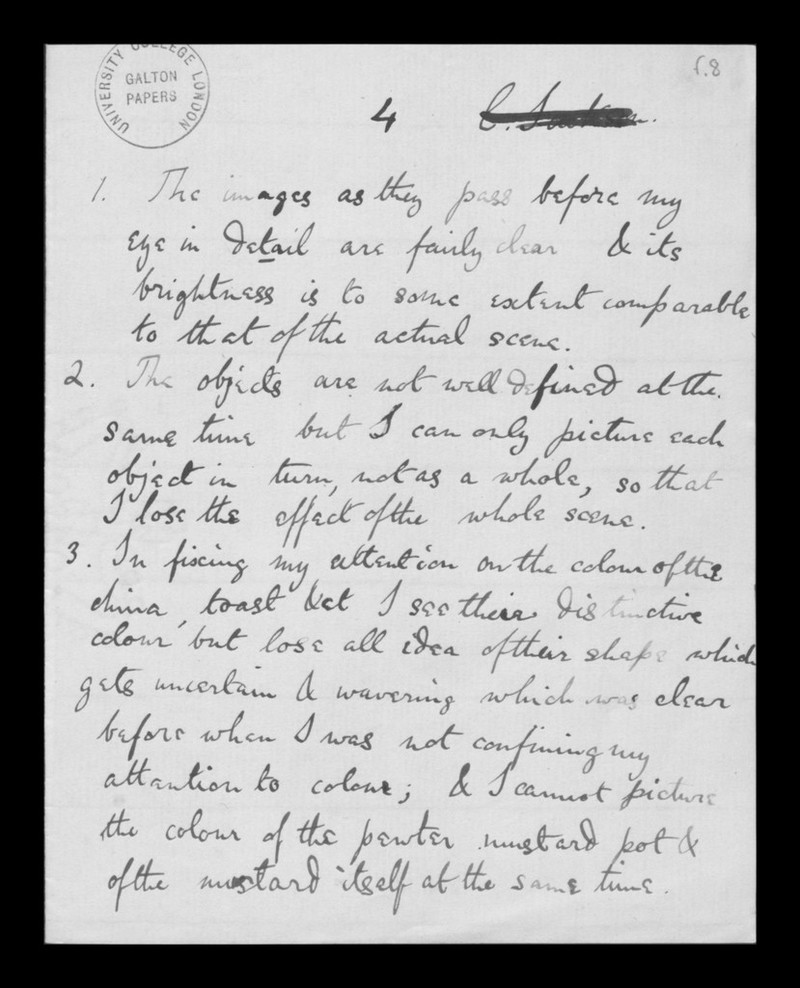 UNIVERSITY COLLEGE LONDON
GALTON
PAPERS
f.8
4
1. The images as they pass before my
eye in detail are fairly clear & its
brightness is to some extent comparable
to that of the actual scene.
2. The objects are not well defined at the
same time but I can only picture each
object in turn, not as a whole, so that
I lose the effect of the whole scene.
3. In fixing my attention on the colour of the
china, toast &ct I see their distinctive
colour but lose all idea of their shape which
gets uncertain & wavering which was clear
before when I was not confining my
attention to colour; & I cannot picture
the colour of the pewter mustard pot &
of the mustard itself at the same time.